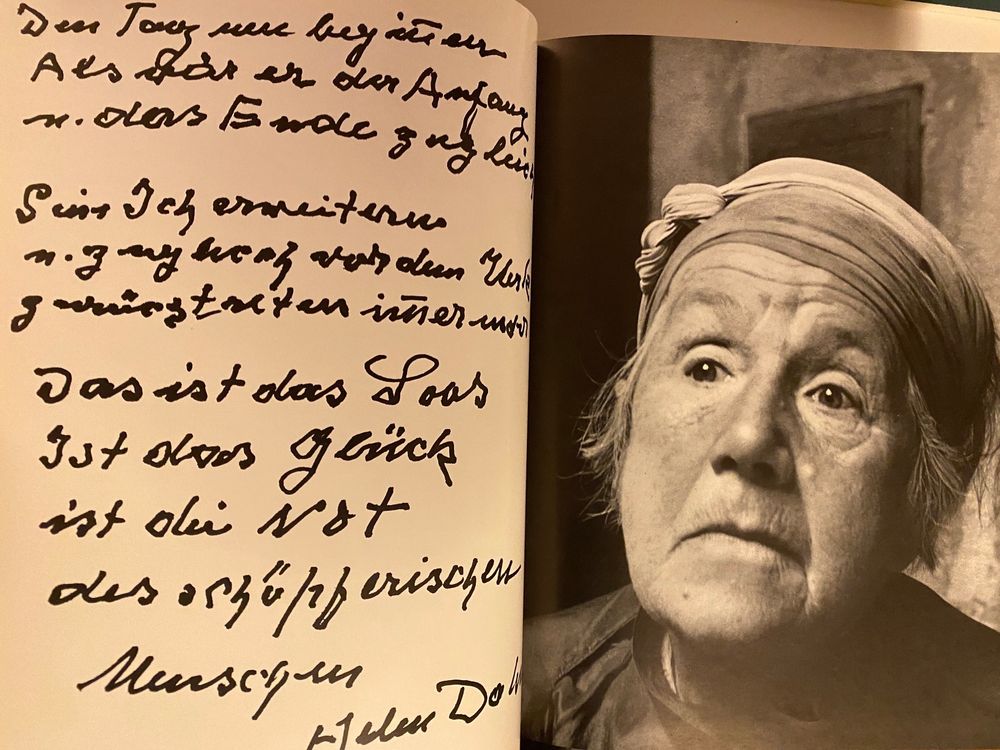 Den Tag neu begin̄en
Als wär er der Anfang
u. das Ende zugleich
Sein Ich erweitern
u. zugleich vor dem Werk
zurücktreten im̄er mehr
Das ist das Loos
Ist das Glück
ist die Not
des schöpferischen
Menschen
Helen Dah